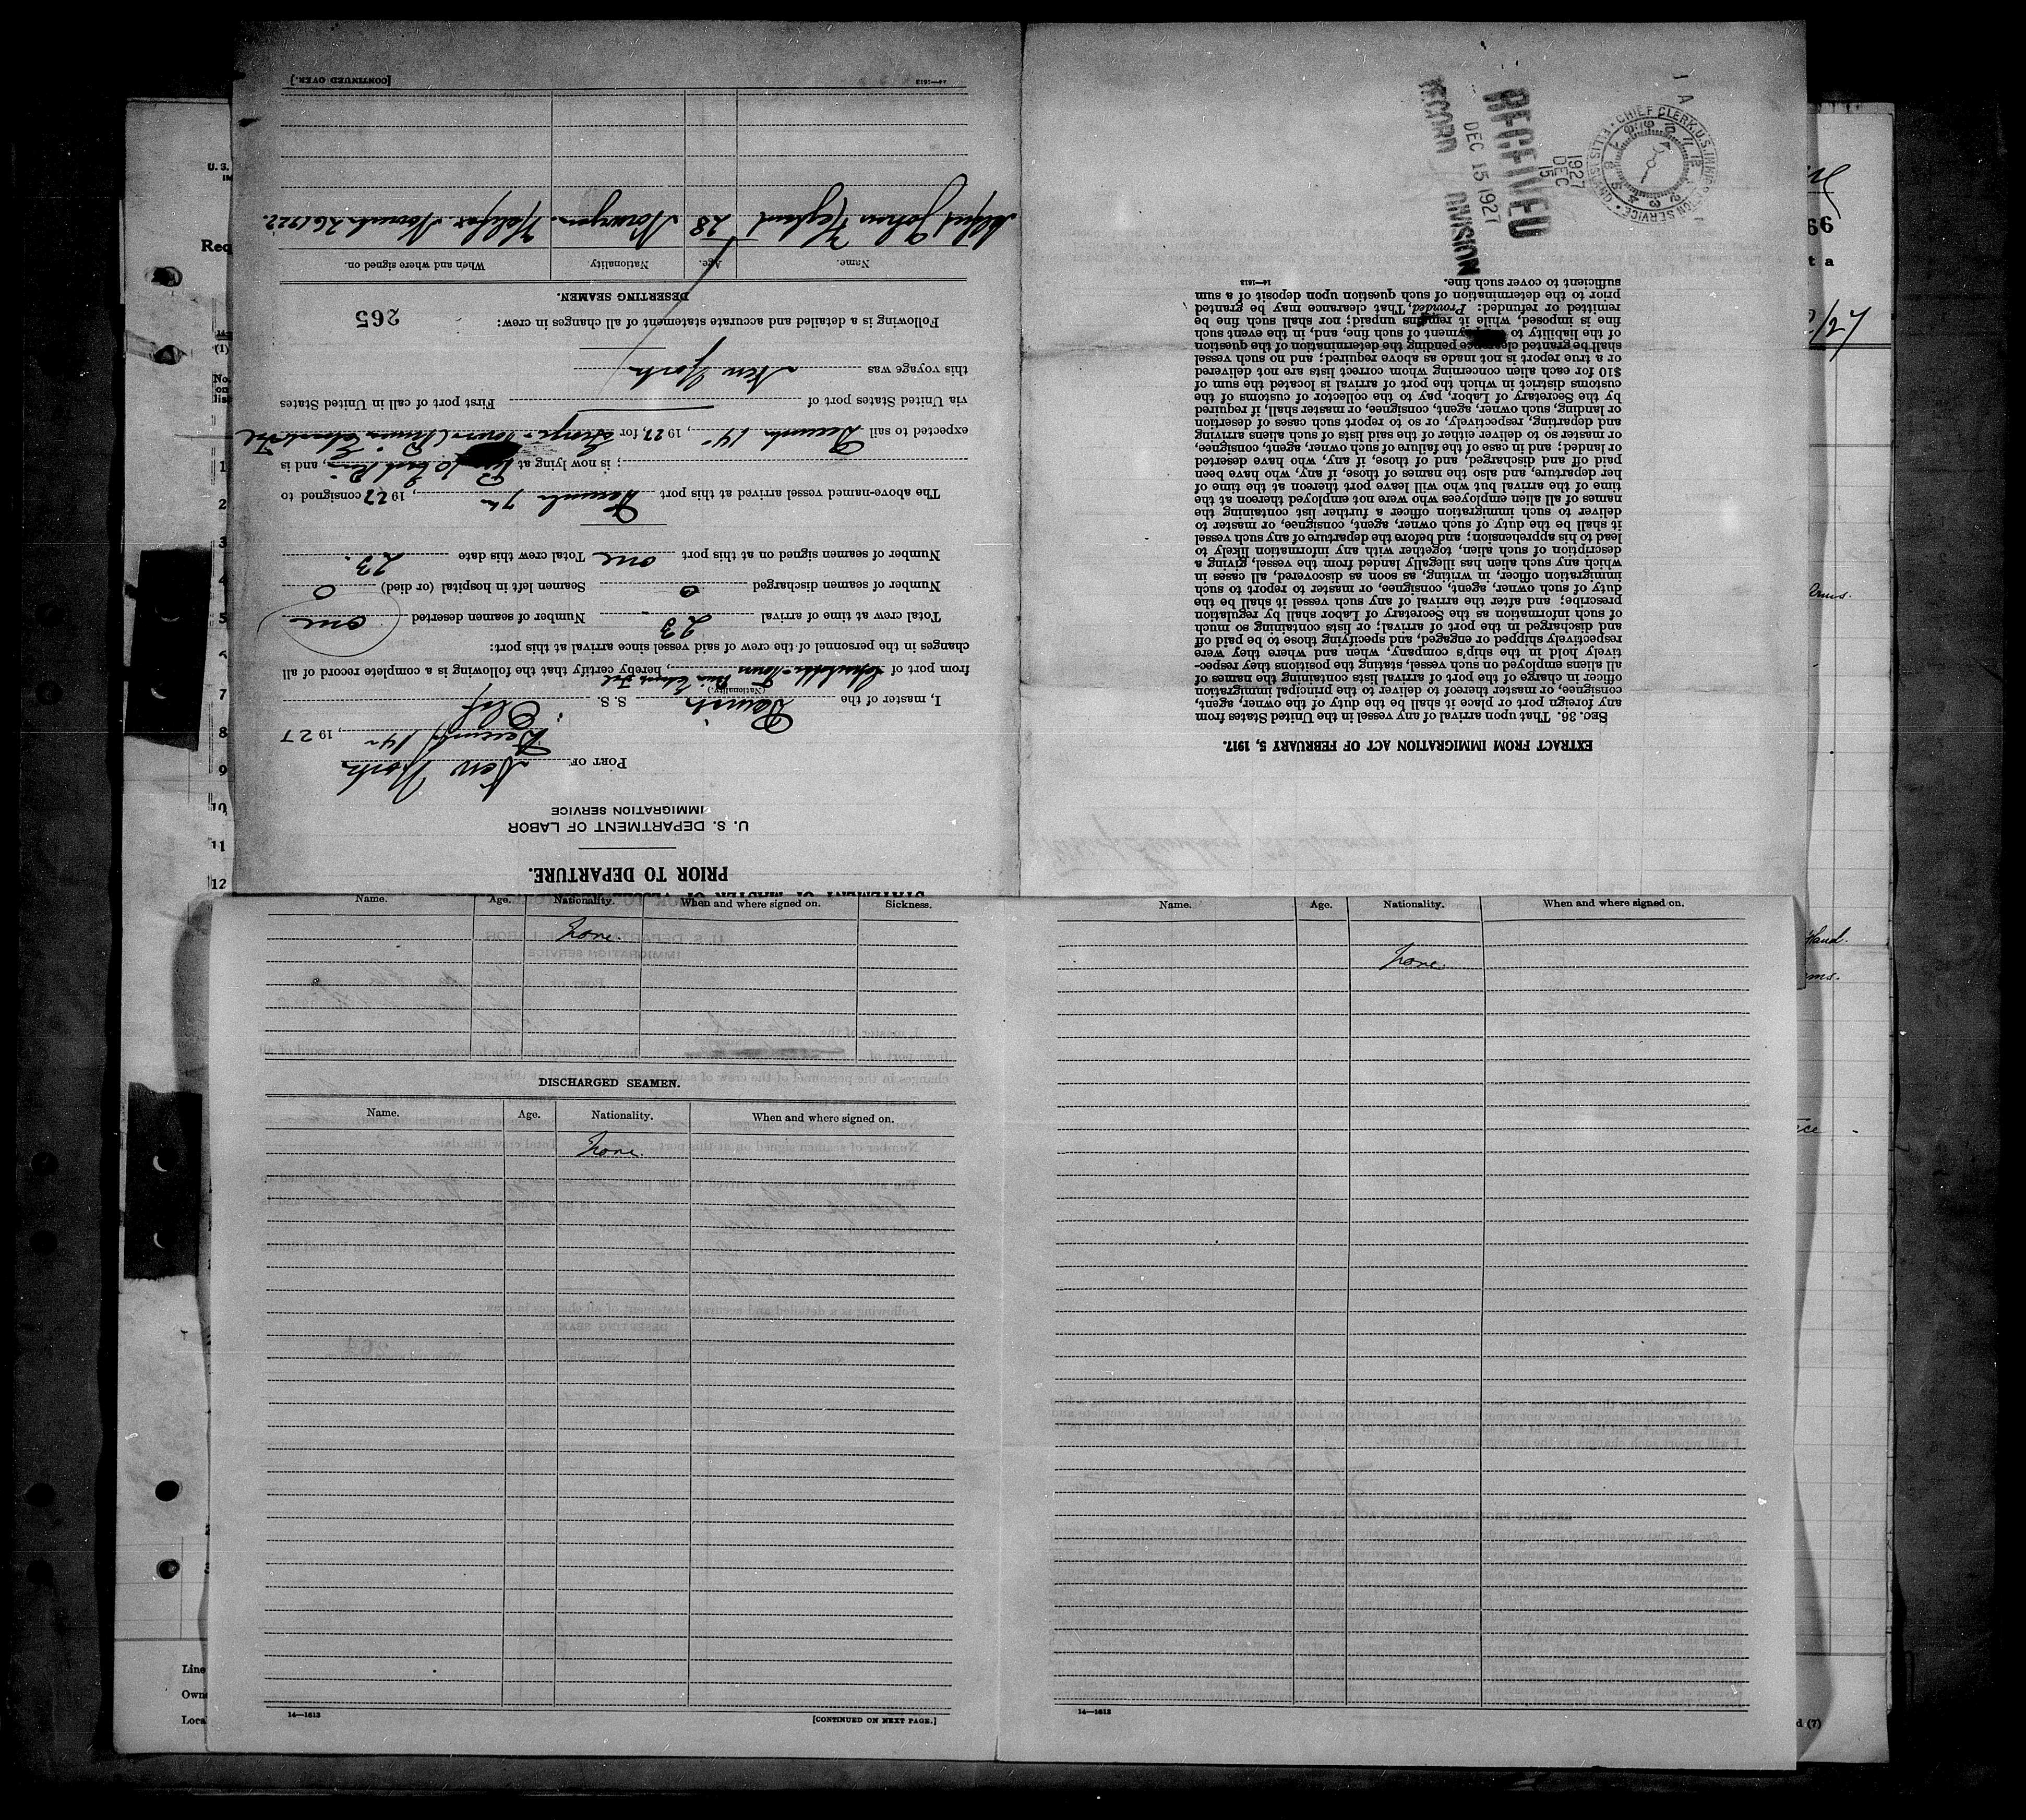 STATEMENT OF MASTER OF VESSEL
PRIOR TO DEPARTURE.
U. S. DEPARTMENT OF LABOR
IMMIGRATION SERVICE
PORT OF New York
December 14th, 1927
I, master of the Danish S. S. Olaf
(Nationality.)
from port of Charlotte-Town, hereby certify that the following is a complete record of all
changes in the personnel of the crew of said vessel since arrival at this port:
Total crew at time of arrival 23 Number of seamen deserted one
Number of seamen discharged 0 Seamen left in hospital (or died) 0
Number of seamen signed on at this port one Total crew this date 23.
The above-named vessel arrived at this port December 7th, 1927 consigned to
; is now lying at, and is
expected to sail December 14th, 1927, for
via United States port of First port of call in United States
this voyage was New York
Following is a detailed and accurate statement of all changes in crew:
265
DESERTING SEAMEN.
Name. Age. Nationality. When and where signed on.
Johan 28 Norwegian. Halifax November 26 1927.
14—1613 [CONTINUED OVER.]
EXTRACT FROM IMMIGRATION ACT OF FEBRUARY 5, 1917.
SEC. 36. That upon arrival of any vessel in the United States from
any foreign port or place it shall be the duty of the owner, agent,
consignee, or master thereof to deliver to the principal immigration
officer in charge of the port of arrival lists containing the names of
all aliens employed on such vessel, stating the positions they respec-
tively hold in the ship's company, when and where they were
respectively shipped or engaged, and specifying those to be paid off
and discharged in the port of arrival; or lists containing so much
of such information as the Secretary of Labor shall by regulation
prescribe; and after the arrival of any such vessel it shall be the
duty of such owner, agent, consignee, or master to report to such
immigration officer, in writing, as soon as discovered, all cases in
which any such alien has illegally landed from the vessel, giving a
description of such alien, together with any information likely to
lead to his apprehension; and before the departure of any such vessel
it shall be the duty of such owner, agent, consignee, or master to
deliver to such immigration officer a further list containing the
names of all alien employees who were not employed thereon at the
time of the arrival but who will leave port thereon at the time of
her departure, and also the names of those, if any, who have been
paid off and discharged, and of those, if any, who have deserted
or landed; and in case of the failure of such owner, agent, consignee,
or master so to deliver either of the said lists of such aliens arriving
and departing, respectively, or so to report such cases of desertion
or landing, such owner, agent, consignee, or master shall, if required
by the Secretary of Labor, pay to the collector of customs of the
customs district in which the port of arrival is located the sum of
$10 for each alien concerning whom correct lists are not delivered
or a true report is not made as above required; and no such vessel
shall be granted clearance pending the determination of the question
of the liability to payment of such fine, and, in the event such
fine is imposed, while it remains unpaid; nor shall such fine be
remitted or refunded: Provided, That clearance may be granted
prior to the determination of such question upon deposit of a sum
sufficient to cover such fine.
14—1613
RECEIVED
DEC 15 1927
RECORD DIVISION
1927
DEC
15
CHIEF CLERK, U.S. IMMIGRATION SERVICE • ELLIS ISLAND, N.Y.
Name. Age. Nationality. When and where signed on. Sickness.
None.
DISCHARGED SEAMEN.
Name. Age. Nationality. When and where signed on.
None.
14—1613 [CONTINUED ON NEXT PAGE.]
Name. Age. Nationality. When and where signed on.
None.
14—1613
U. S.
Req
(1)
No.
on
list
1
2
3
4
5
6
7
8
9
10
11
12
Line
Owne
Loca
66
t a
/27
Hand.
d (7)